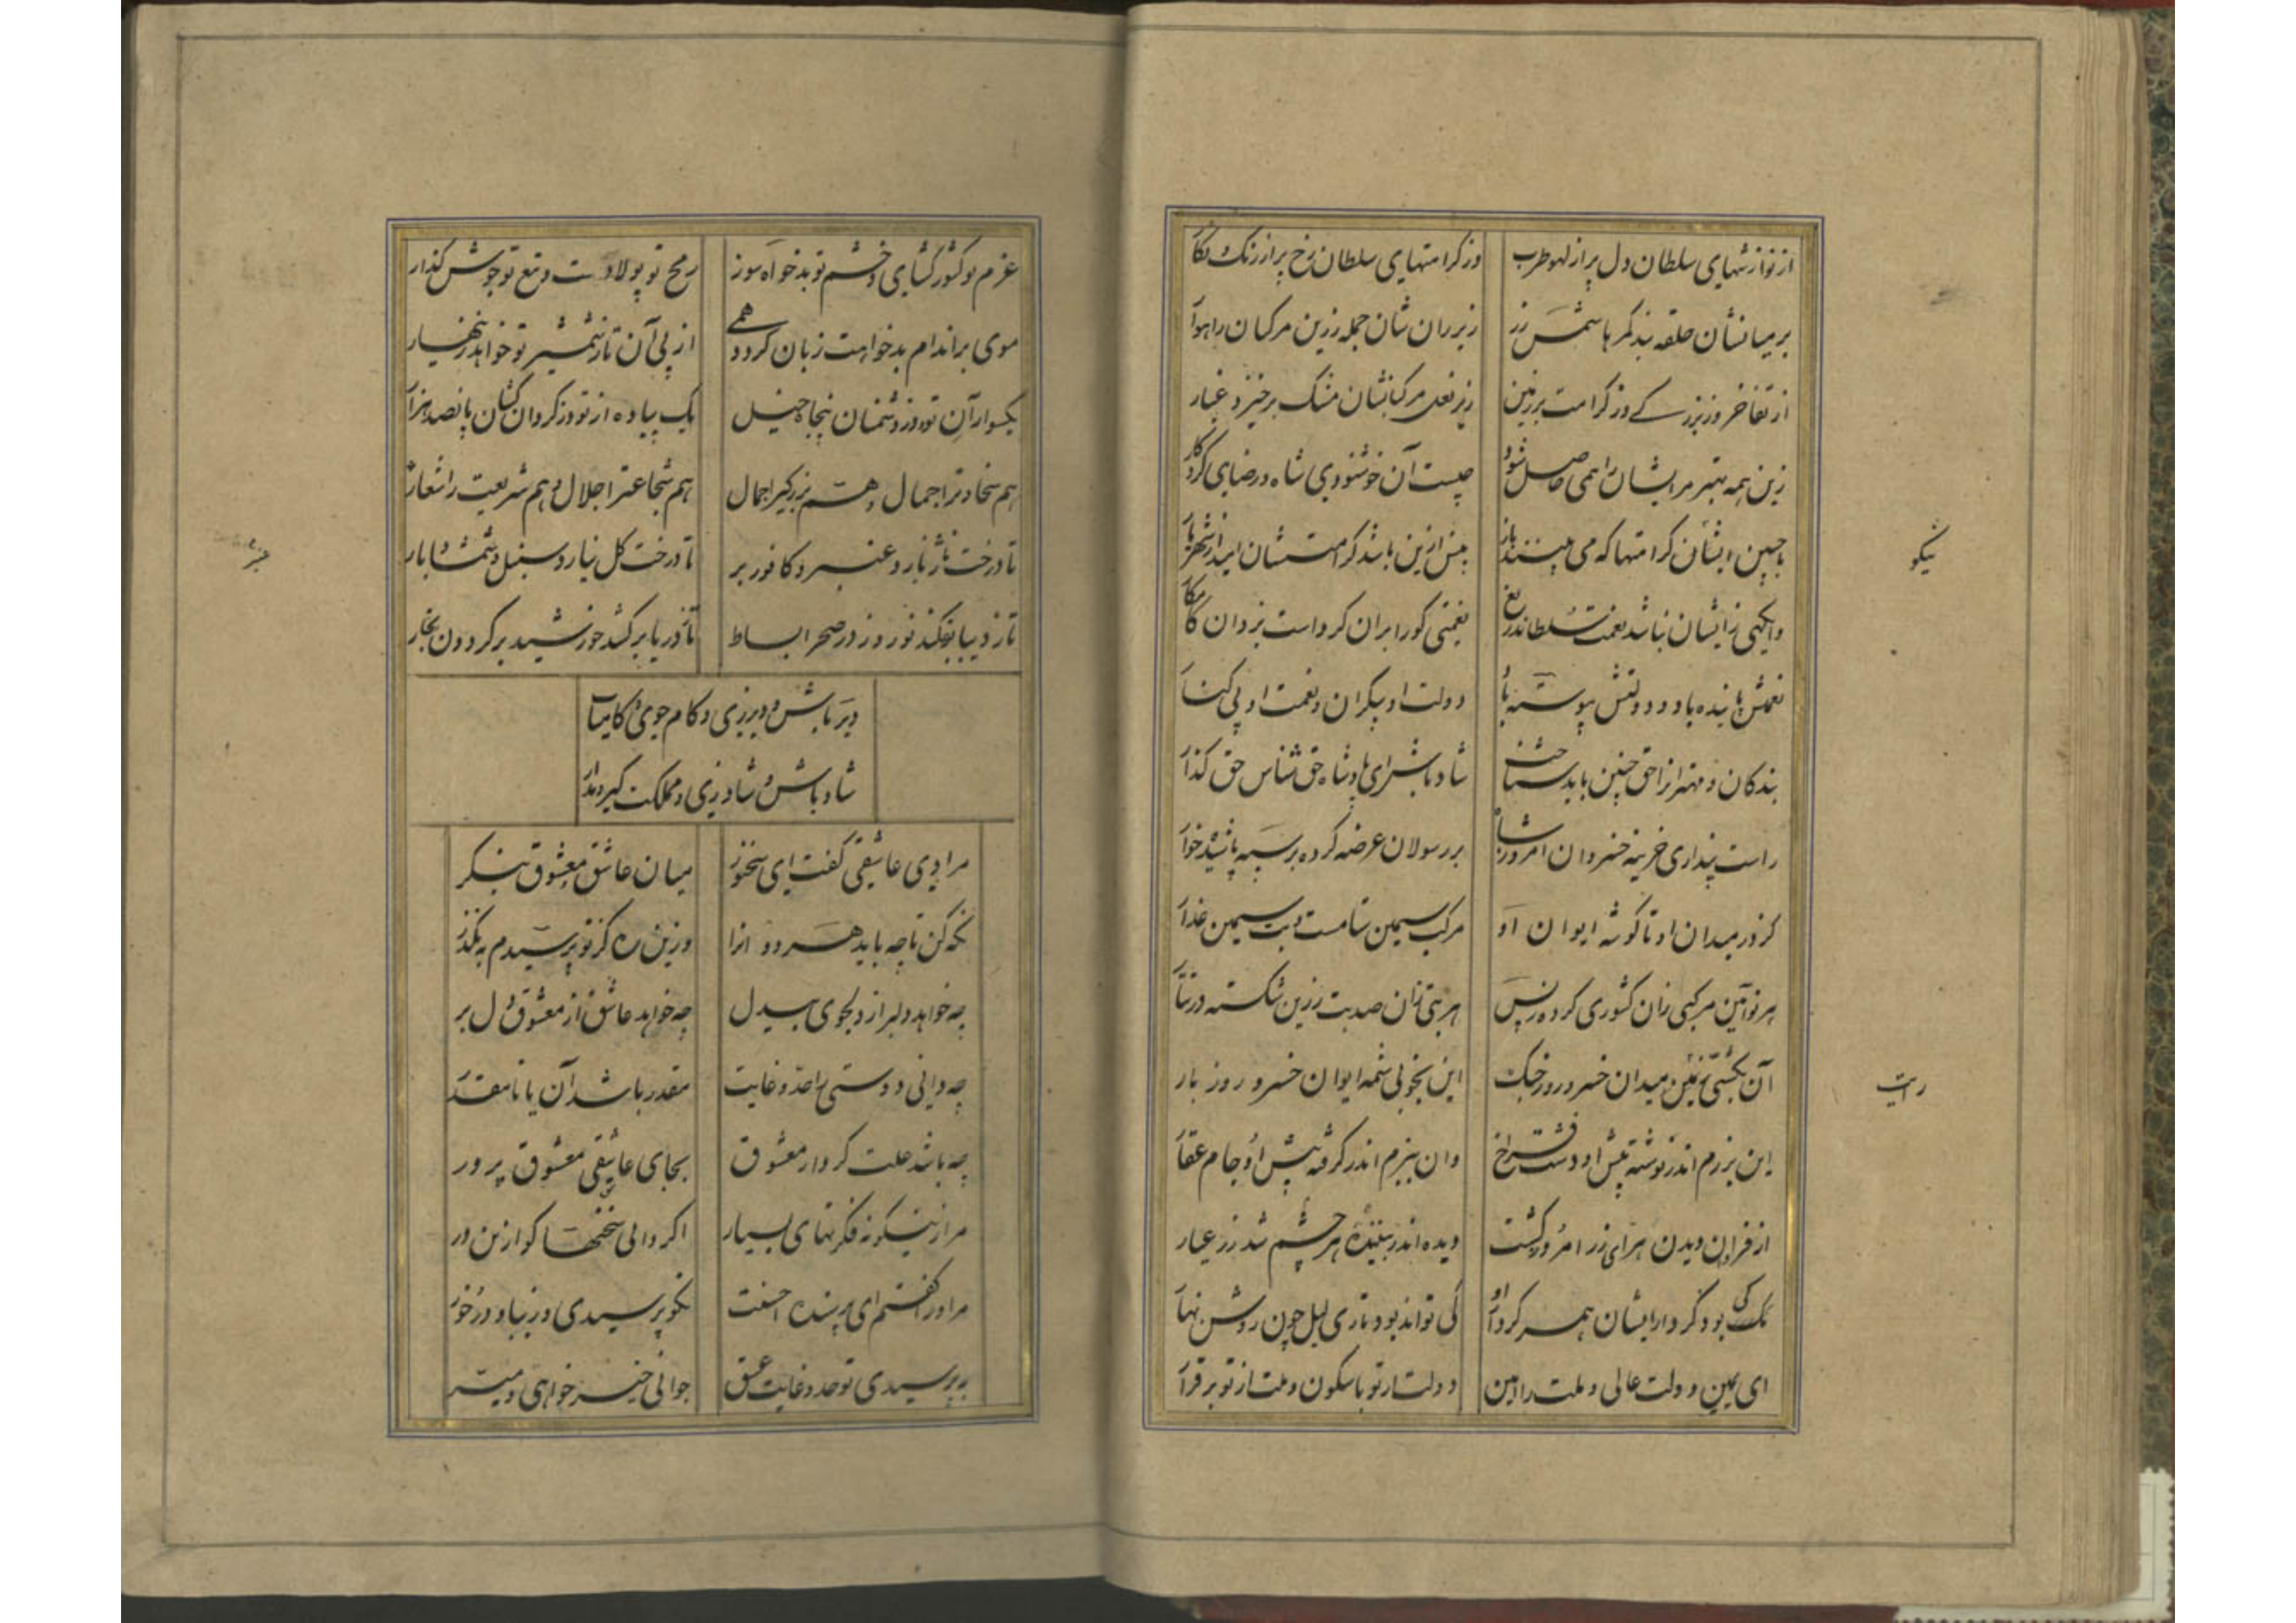 از نوازشهای سلطان دل پر از لهو طرب وز کرامتهای سلطان رخ پر از رنک نکار
بر میانشان حلقه بند کمرها شمس زر زیر ران شان جمله زرین مرکبان راهوار
از تفاخر وز بزرکی وز کرامت بر زمین زیر نعل مرکبانشان مشک برخیزد غبار
زین همه بهتر مر ایشان را همی حاصل شود چیست آن خوشنودی شاه و رضای کردکار
با چنین ایشان کرامتها که می بینند باز بیش ازین باشد کرامتشان امید از شهریار
وانکهی زایشان نباشد نعمت سلطان دریغ نعمتی کورا بران کرد است یزدان کامکار
نعمتش پاینده باد و دولتش پیوسته باد دولت او بیکران و نعمت او بی کنار
بندکان و مهتران را حق چنین باید شناخت شاد باش ای پادشاه حق شناس حق کذار
راست پنداری خزینه خسروان امروز شاه بر رسولان عرضه کرده بر سپه پاشیده خوار
کز در میدان او تا کوشه ایوان او مرکب سیمین ستامست و بت سیمین عذار
هر نوآیین مرکبی زان کشوری کرده ز پس هر بتی زان صد بت زرین شکسته در تتار
آن بکشتی میدان خسرو روز جنک این بخوبی شمه ایوان خسرو روز بار
این برزم اندر نوشته پیش او دشت فراخ وان ببزم اندر کرفته پیش او جام عقار
از فراوان دیدن هرای زر امروز کشت دیده اندر بیننده هر چشم شد زر عیار
نیک کی بود کردار ایشان همسر کردار او کی تواند بود تاری لیل چون روشن نهار
ای یمین دولت عالی و ملت را امین دولت از تو با سکون و ملت از تو برقرار
نیکو
رایت
عزم تو کشور کشای و خشم تو بدخواه سوز رمح تو پولاد ست و تیغ تو جوشن کذار
موی بر اندام بدخواهت زبان کردد همی از پی آن تا ز شمشیر تو خواهد زینهار
یکسوار آن تو و وز دشمنان پنجاه خیل یک پیاده از تو وز کردان کشان پانصد هزار
هم سخاوترا جمال و هم بزرکیرا جمال هم شجاعترا جلال و هم شریعت را شعار
تا درخت نار نارد عنبر و کافور بر تا درخت کل نیارد سنبل و شمشاد بار
تا ز دیبا بفکند نوروز در صحرا بساط تا ز دریا برکشد خورشید بر کردون بخار
دیر باش و دیر زی و کام جوی و کامیاب
شاد باش و شاد زی و مملکت کیر و بدار
مرا دی عاشقی کفت ای سخنور میان عاشق و معشوق بنکر
نکه کن تا چه باید هر دو انرا وزین ره کز تو پرسیدم به مکذر
چه خواهد دلبر از دلجوی بیدل چه خواهد عاشق از معشوق دل بر
چه دانی دوستی را حد و غایت مقدر باشد آن یا نامقدر
چه باشد علت کردار معشوق بجای عاشقی معشوق پرور
مرا زینکونه فکرتهای بسیار اکر دانی سخنها کو ازین در
مر او را کفتم ای پرسنده احسنت نکو پرسیدی و زیبا و درخور
بپرسیدی تو حد و غایت عشق جوابی خیر خواهی و میسر